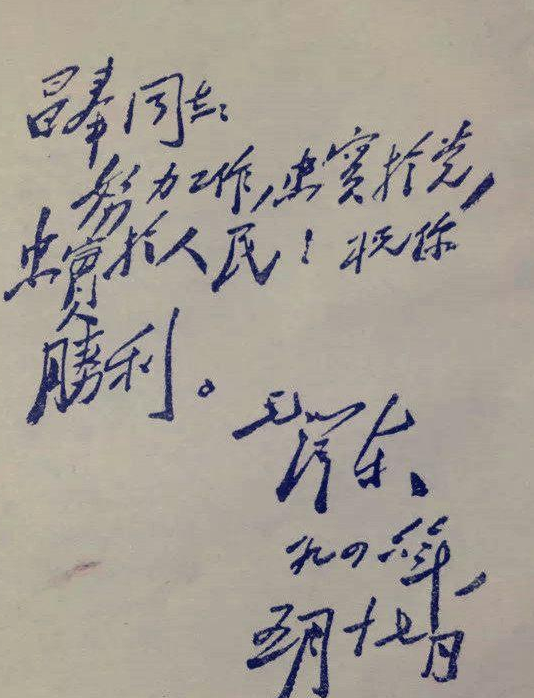 昌奉同志:
努力工作,忠實於党,
忠實於人民!祝你
勝利。
毛澤东、
一九四六年,
五月十七日